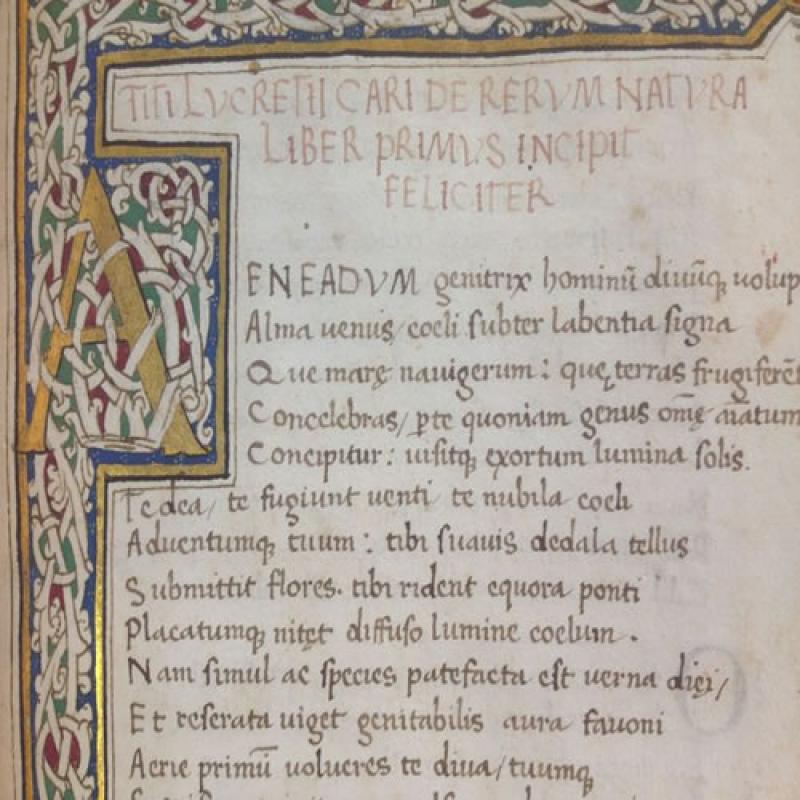 TITI LVCRETII CARI DE RERVM NATVRA
LIBER PRIMVS INCIPIT
FELICITER
AENEADVM genitrix hominū diuūq; uolup
Alma uenus/ coeli subter labentia signa
Que marę nauigerum: quę terras frugiferēt
Concelebras/ ꝑte quoniam genus omę aīatum
Concipitur: uisitq; exortum lumina solis.
Te dea/ te fugiunt uenti te nubila coeli
Aduentumq; tuum: tibi suauis dedala tellus
Submittit flores. tibi rident equora ponti
Placatumq; nitęt diffuso lumine coelum.
Nam simul ac species patefacta est uerna dięi/
Et reserata uiget genitabilis aura fauoni
Aerie primū uolucres te diua/ tuumq;